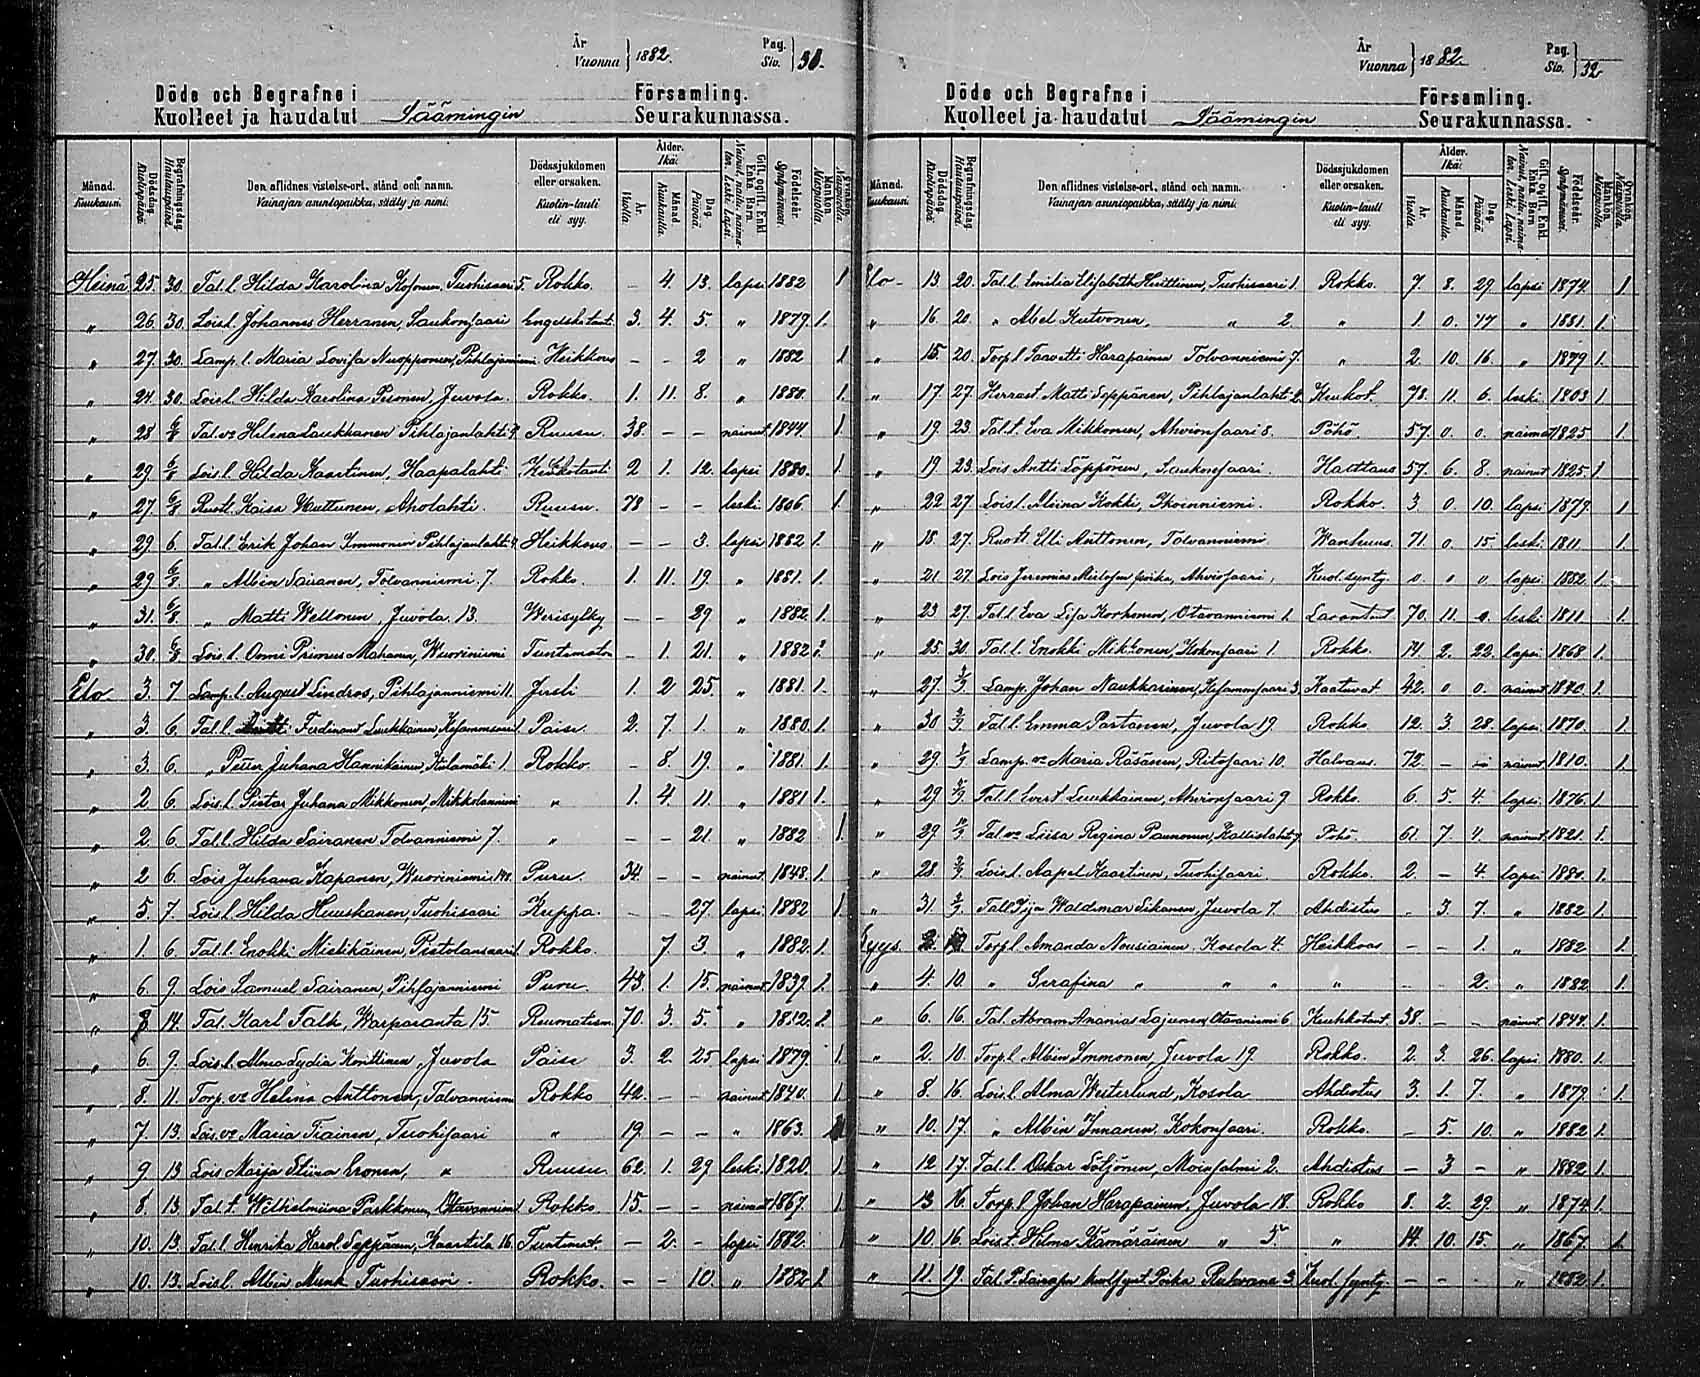 År
Vuonna } 1882.
Pag.
Siv. } 31.
Döde och Begrafne i Församling.
Kuolleet ja haudatut Sääminginn Seurakunnassa.
Månad. Kuukausi. Dödsdag. Kuolinpäivä. Begrafningsdag. Hautauspäivä. Den aflidnes vistelse-ort, stånd och namn. Vainajan asuntopaikka, sääty ja nimi. Dödssjukdomen eller orsaken. Kuolin-tauti eli syy. Ålder. Ikä: År. Vuotta. Månad. Kuukautta. Dag. Päivää. Gift, ogift, Enkl. Enka Barn. Nainut, naitu, naimaton, Leski, Lapsi. Födelseår. Syntymävuosi. Mankön. Miespuolia. Qvinkön. Naispuolia.
Heinä 25. 30. Tal. l. Hilda Karolina Kosonen, Tuohisaari 5. Rokko. – 4. 13. lapsi 1882 1
" 26. 30. Lois l. Johannes Herranen, Saukonsaari Engelska tauti 3. 4. 5. " 1879. 1.
" 27. 30. Lamp. l. Maria Lovisa Nuopponen, Pihlajaniemi Heikkous – – 2 " 1882 1
" 24. 30. Lois l. Hilda Karolina Pesonen, Juvola. Rokko. 1. 11. 8. " 1880. 1.
" 28 6/8 Tal. vo Helena Laukkanen Pihlajanlahti Ruusu. 38. – – nainut 1844. 1.
" 29. 6/8 Lois. l. Hilda Kaartinen, Haapalahti Keuhkotauti 2 1. 12. lapsi 1880. 1.
" 27. 6/8 Ruotl. Kaisa Wuttunen, Aholahti. Ruusu. 78 – – leski. 1806 1.
" 29 6. Tal. l. Erik Johan Immonen Pihlajanlahti 4. Heikkous. – – 3. lapsi 1882 1.
" 29 6/8. " Albin Sairanen, Tolvanniemi. 7. Rokko. 1. 11. 19. " 1881. 1.
" 31. 6/8. " Matti Wellonen, Juvola 13. Werisylky – – 29 " 1882. 1.
" 30. 6/8 Lois. l. Onni Primus Mahanen, Wuoriniemi Tuntematon – 1. 21. " 1882
Elo 3. 7 Lamp. l. August Lindros, Pihlajanniemi 11. 1. 2 25. " 1881. 1.
" 3. 6. Tal. l. Ferdinand Luukkainen Kesamonsaari Paise 2. 7 1. " 1880. 1.
" 3. 6. " Petter Juhana Hannikainen, Kulamäki 1. Rokko – 8. 19. " 1881. 1.
" 2 6. Lois. l. Pietar Juhana Mikkonen, Mikkolanniemi " 1. 4 11. " 1881 1.
" 2. 6. Tal. l. Hilda Sairanen Tolvanniemi 7. " – – 21. " 1882 1.
" 2 6. Lois Juhana Kapanen, Wuoriniemi Puru. 34. – – nainut. 1848. 1.
" 5. 7. Lois. l. Hilda Huuskanen, Tuohisaari Kuppa. – – 27 lapsi 1882 1.
" 1. 6. Tal. l. Enokki Mielikäinen, Pistolansaari Rokko. 7 3. " 1882. 1.
" 6. 9. Lois Samuel Sairanen, Pihlajanniemi Puru. 43. 1. 15. nainut 1839. 1.
" 8 14. Tal. Karl Falk, Warparanta 15. Reumatism. 70. 3. 5. " 1812. 1.
" 6. 9. Lois. l. Alma Lydia Konttinen, Juvola Paise 3. 2. 25 lapsi 1879. 1.
" 8. 11. Torp. vo Helena Anttonen, Tolvanniemi Rokko 42. – – nainut 1840. 1.
" 7. 13. Lois. vo Maria Tiainen, Tuohisaari " 19. – – " 1863. 1
" 9 13 Lois Maija Stiina Eronen, " Ruusu 62. 1. 29 leski. 1820. 1.
" 8. 13. Tal. t. Wilhelmiina Parkkonen, Otavanniemi Rokko 15. – – 1867. 1.
" 10. 13. Tal. l. Henrika Karol. Seppänen, Kaartila 16. Tuntemat. – 2. – lapsi 1882. 1
" 10. 13. Lois l. Albin Munk Tuohisaari. Rokko. – – 10. " 1882 1
År
Vuonna } 1882.
Pag.
Siv. } 32
Döde och Begrafne i Församling.
Kuolleet ja haudatut Säämingin Seurakunnassa.
Månad. Kuukausi. Dödsdag. Kuolinpäivä. Begrafningsdag. Hautauspäivä. Den aflidnes vistelse-ort, stånd och namn. Vainajan asuntopaikka, sääty ja nimi. Dödssjukdomen eller orsaken. Kuolin-tauti eli syy. Ålder. Ikä: År. Vuotta. Månad. Kuukautta. Dag. Päivää. Gift, ogift, Enkl. Enka Barn. Nainut, naitu, naimaton, Leski, Lapsi. Födelseår. Syntymävuosi. Mankön. Miespuolia. Qvinkön. Naispuolia.
Elo – 13. 20. Tal. l. Emilia Elisabeth Hinttinen, Tuohisaari 1. Rokko. 7. 8. 29 lapsi 1874. 1
" 16. 20. " Abel Kutvonen, " 2. " 1. 0. 17 " 1881. 1.
" 15. 20. Torp. l. Taavetti Harapainen Tolvanniemi 7. " 2. 10. 16. " 1879 1.
" 17. 27. Matti Seppänen, Pihlajanlahti 2. Keuhkot. 78. 11. 6. leski. 1803 1.
" 19. 23. Tal. t. Eva Mikkonen, Ahvionsaari 8. Pöhö. 57. 0. 0. 1825 1.
" 19 23. Lois Antti Löppönen, Saukonsaari. Halttaus 57. 6. 8. nainut 1825. 1.
" 22 27. Lois l. Miina Kokki, Ikoinniemi. Rokko. 3 0. 10. lapsi 1879. 1.
" 18. 27. Ruoti Elli Anttonen, Tolvanniemi Wanhuus. 71. 0. 15. leski. 1811. 1.
" 21. 27. Lois Jeremias poika, Ahviosaari, Kuol. synty. 0. " 0 lapsi 1882. 1.
" 23 27. Tal. l. Eva Lisa Korhonen, Otavanniemi 1. 70. 11. 0. leski 1811 1.
" 25. 30. Tal. l. Enokki Mikkonen, Kokonsaari 1. Rokko. 14 2. 22. lapsi. 1868 1.
" 27. 3/9. Lamp. Johan Naukkarinen, Kesamonsaari 3. Kaatuvat. 42. 0 0. nainut 1840. 1.
" 30 3/9 Tal. l. Emma Partanen, Juvola 19. Rokko. 12. 3 28. lapsi. 1870. 1.
" 29. 3/9 Lamp. vo Maria Räsänen, Ritosaari 10. Halvaus. 72. – – nainut. 1810. 1.
" 29 Tal. l. Evert Luukkainen, Ahvionsaari 9 Rokko. 6. 5. 4. lapsi. 1876. 1.
" 29. Tal. vo Liisa Regina Paunonen, Kallislahti 7. Pöhö. 61 7 4. nainut. 1821. 1.
" 28. 3/9. Lois. l. Aapel Kaartinen, Tuohisaari. Rokko. 2. – 4. lapsi. 1880. 1.
" 31. 3/9. Tal. l. Waldemar Sikanen, Juvola 7. Ahdistus – 3. 7. " 1882 1.
Syys. Torp. l. Amanda Nousiainen, Kosola 4. Heikkous – – 1. " 1882 1.
" 4. 10. " Serafina " " " " – – 2. " 1882. 1.
" 6. 16. Tal. Abram Ananias Lajunen, Otavaniemi 6 Keuhkotaut. 38. – – nainut 1844. 1.
" 2. 10. Torp. l. Albin Immonen, Juvola 19 Rokko. 2. 3. 26. lapsi. 1880. 1.
" 8. 16 Lois. l. Alma Westerlund, Kosola Ahdistus 3. 1. 7. " 1879. 1.
" 10. 17. " Albin Innanen, Kokonsaari. Rokko. – 5. 10. " 1882 1.
" 12 17. Tal. l. Oskar Söljönen, Moinsalmi 2. Ahdistus – 3 – " 1882 1.
" 13 16. Torp. l. Johan Harapainen, Juvola 18. Rokko 8. 2. 29. " 1874 1.
" 10. 16. Lois. t. Helma Kämäräinen " 5. " 14. 10. 15. " 1867. 1.
" 11. 19. Tal. P. Sairasen kuolsynt. Poika Ruhvana 3. Kuol. synty. – – – " 1882 1.